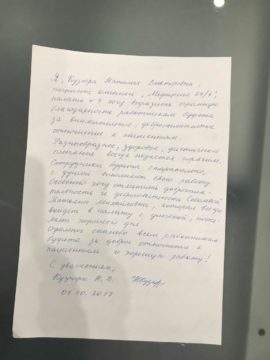 Я, Кузнора Наталия Викторовна,
пациент клиники "Медицина 24/7",
палата № 9 хочу выразить огромную
благодарность работникам буфета
за внимательное, доброжелательное
отношение к пациентам.
Разнообразное, здоровое, диетическое
питание всегда подается горячим.
Сотрудники буфета старательно,
с душой выполняют свою работу.
Особенно хочу отметить
и доброжелательность
Наталию Михайловну, которая всегда
войдет в палату с улыбкой,
хорошего дня.
Огромное спасибо всем работникам
буфета за доброе отношение к
пациентам и хорошую работу!
С уважением,
Н. В.
01.10.2017